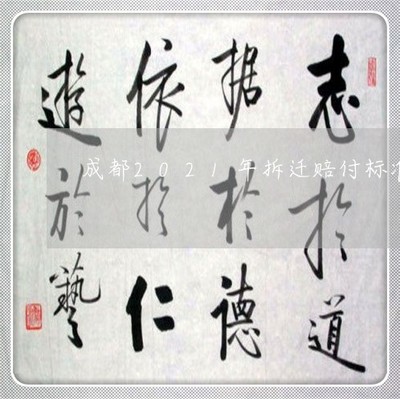 志於道
据於德
依於仁
遊於藝
成都2021年拆迁赔付标